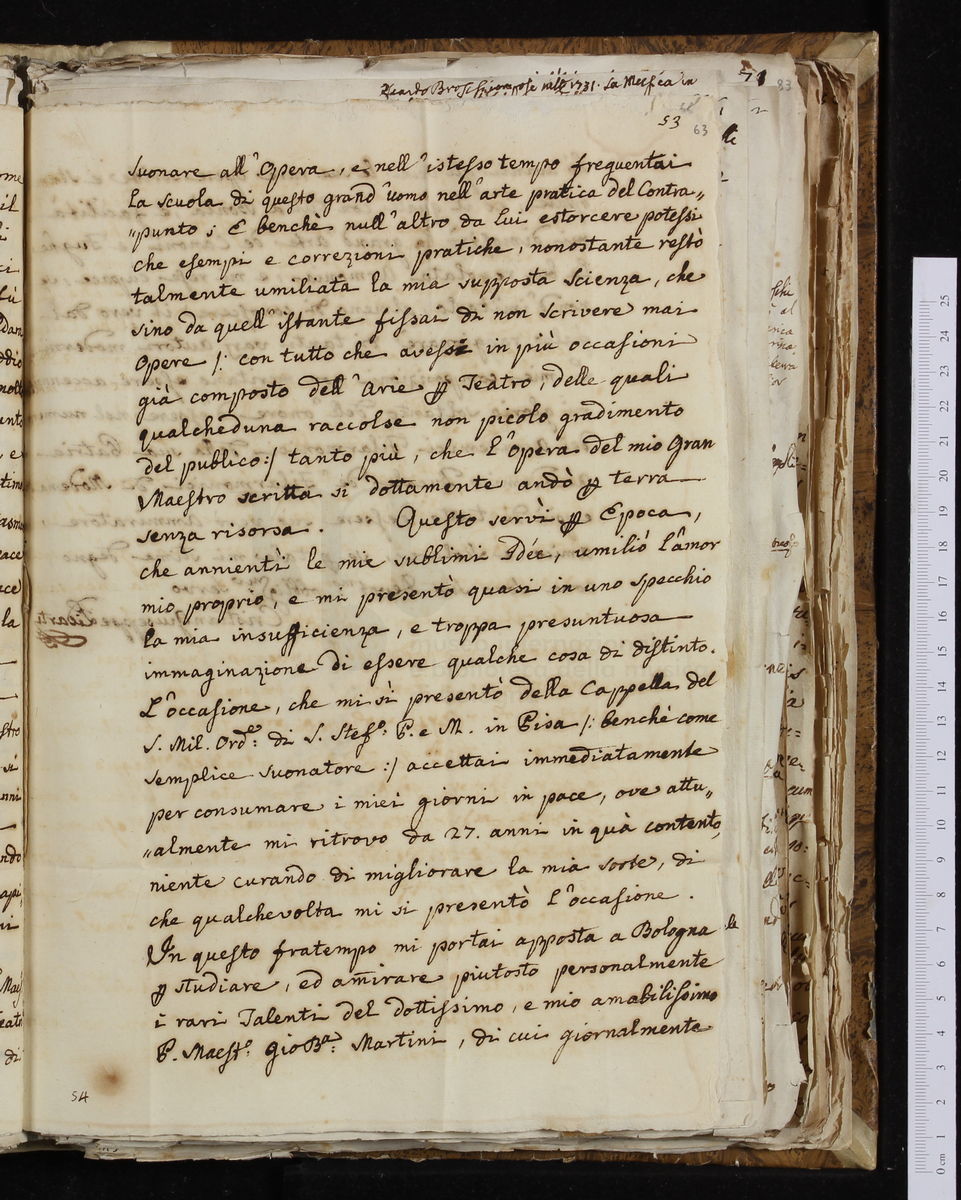 53
63
83
suonare all'Opera, e nell'istesso tempo frequentai
la scuola di questo grand'uomo nell'arte pratica del Contra„
„punto; E benchè null'altro da lui estorcere potessi
che esempi e correzioni pratiche, nonostante restò
talmente umiliata la mia supposta Scienza, che
sino da quell'istante fissai di non scrivere mai
Opere /: con tutto che avessi in più occasioni
già composto dell'Arie ꝑ Teatro, delle quali
qualcheduna raccolse non picolo gradimento
del publico:/ tanto più, che l'Opera del mio Gran
Maestro scritta si dottamente andò ꝑ terra
senza risorsa. Questo servì ꝑ Epoca,
che annientì le mie sublimi Idée, umiliò l'amor
mio proprio, e mi presentò quasi in uno specchio
la mia insufficienza, e troppa presuntuosa
immaginazione di essere qualche cosa di distinto.
L'occasione, che mi si presentò della Cappella del
S. Mil. Ord.e: di S. Stef.o: P. e M. in Pisa /: benchè come
semplice suonatore :/ accettai immediatamente
per consumare i miei giorni in pace, ove attu„
„almente mi ritrovo da 27. anni in quà contento,
niente curando di migliorare la mia sorte, di
che qualchevolta mi si presentò l'occasione.
In questo fratempo mi portai apposta a Bologna
ꝑ studiare, ed am̃irare piutosto personalmente
i rari Talenti del dottissimo, e mio amabilissimo
P. Maest.o Gio B.a: Martini, di cui giornalmente
54
0 cm 1 2 3 4 5 6 7 8 9 10 11 12 13 14 15 16 17 18 19 20 21 22 23 24 25